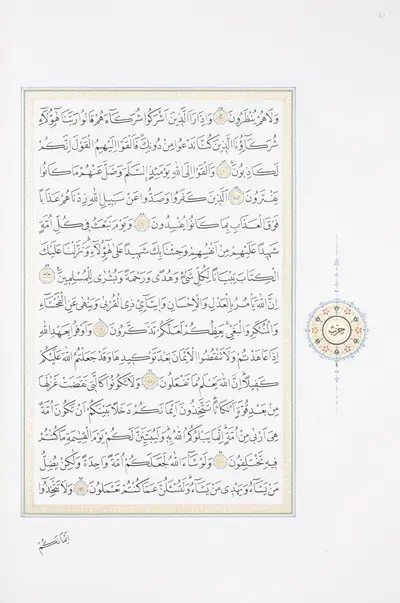 وَلَا هُمْ يُنْظَرُونَ ۝ وَاِذَا رَاَ الَّذِينَ اَشْرَكُوا شُرَكَاءَهُمْ قَالُوا رَبَّنَا هٰؤُلَاءِ
شُرَكَاؤُنَا الَّذِينَ كُنَّا نَدْعُوا مِنْ دُونِكَ فَاَلْقَوْا اِلَيْهِمُ الْقَوْلَ اِنَّكُمْ
لَكَاذِبُونَ ۝ وَاَلْقَوْا اِلَى اللّٰهِ يَوْمَئِذٍ السَّلَمَ وَضَلَّ عَنْهُمْ مَا كَانُوا
يَفْتَرُونَ ۝ اَلَّذِينَ كَفَرُوا وَصَدُّوا عَنْ سَبِيلِ اللّٰهِ زِدْنَاهُمْ عَذَابًا
فَوْقَ الْعَذَابِ بِمَا كَانُوا يُفْسِدُونَ ۝ وَيَوْمَ نَبْعَثُ فِي كُلِّ اُمَّةٍ
شَهِيدًا عَلَيْهِمْ مِنْ اَنْفُسِهِمْ وَجِئْنَا بِكَ شَهِيدًا عَلٰى هٰؤُلَاءِ وَنَزَّلْنَا عَلَيْكَ
الْكِتَابَ تِبْيَانًا لِكُلِّ شَيْءٍ وَهُدًى وَرَحْمَةً وَبُشْرٰى لِلْمُسْلِمِينَ ۝
اِنَّ اللّٰهَ يَاْمُرُ بِالْعَدْلِ وَالْاِحْسَانِ وَاِيتَائِ ذِي الْقُرْبٰى وَيَنْهٰى عَنِ الْفَحْشَاءِ
وَالْمُنْكَرِ وَالْبَغْيِ يَعِظُكُمْ لَعَلَّكُمْ تَذَكَّرُونَ ۝ وَاَوْفُوا بِعَهْدِ اللّٰهِ
اِذَا عَاهَدْتُمْ وَلَا تَنْقُضُوا الْاَيْمَانَ بَعْدَ تَوْكِيدِهَا وَقَدْ جَعَلْتُمُ اللّٰهَ عَلَيْكُمْ
كَفِيلًا اِنَّ اللّٰهَ يَعْلَمُ مَا تَفْعَلُونَ ۝ وَلَا تَكُونُوا كَالَّتِي نَقَضَتْ غَزْلَهَا
مِنْ بَعْدِ قُوَّةٍ اَنْكَاثًا تَتَّخِذُونَ اَيْمَانَكُمْ دَخَلًا بَيْنَكُمْ اَنْ تَكُونَ اُمَّةٌ
هِيَ اَرْبٰى مِنْ اُمَّةٍ اِنَّمَا يَبْلُوكُمُ اللّٰهُ بِهِ وَلَيُبَيِّنَنَّ لَكُمْ يَوْمَ الْقِيٰمَةِ مَا كُنْتُمْ
فِيهِ تَخْتَلِفُونَ ۝ وَلَوْ شَاءَ اللّٰهُ لَجَعَلَكُمْ اُمَّةً وَاحِدَةً وَلٰكِنْ يُضِلُّ
مَنْ يَشَاءُ وَيَهْدِي مَنْ يَشَاءُ وَلَتُسْـَٔلُنَّ عَمَّا كُنْتُمْ تَعْمَلُونَ ۝ وَلَا تَتَّخِذُوا
حزب
اَيْمَانَكُمْ